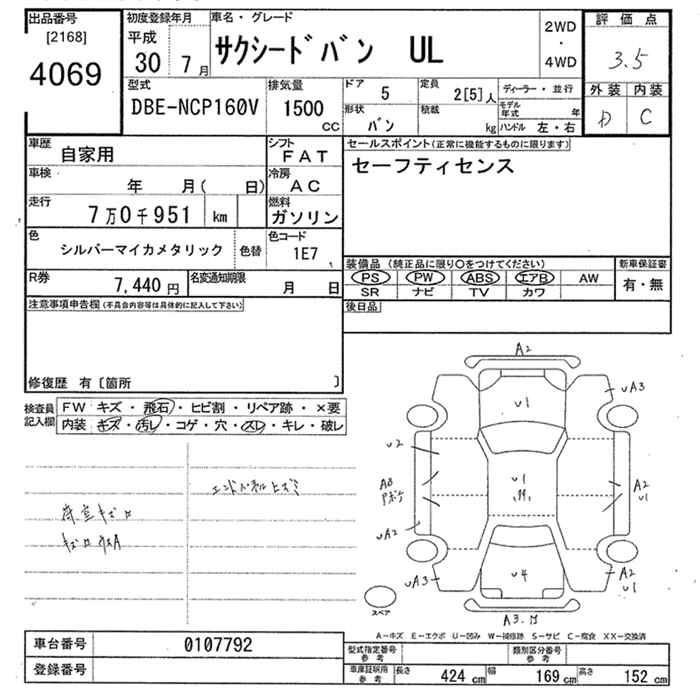 出品番号 初度登録年月 車名・グレード 評価点
[2168] 平成 サクシードバン UL 2WD ・ 4WD 3.5
4069 30 7月 外装 内装
型式 排気量 ドア 定員 ディーラー・並行 D C
DBE-NCP160V 1500 cc 5 2[5]人 モデル年式 年
形状 積載
バン kg ハンドル 左・右
車歴 シフト セールスポイント(正常に機能するものに限ります)
自家用 FAT セーフティセンス
車検 冷房
年 月( 日) AC
走行 燃料
7万0千951 km ガソリン
色 色替 色コード
シルバーマイカメタリック 1E7
装備品 (純正品に限り○をつけてください) 新車保証書
R券 名変通知期限 PS PW ABS エアB AW 有・無
7,440円 月 日 SR ナビ TV カワ
注意事項申告欄(不具合内容等は具体的に記入して下さい) 後日品
修復歴 有〔箇所 〕
検査員記入欄 FW キズ・飛石・ヒビ割・リペア跡・×要
内装 キズ・汚レ・コゲ・穴・スレ・キレ・破レ
A2
U1 UA3
U2
U1 A2
AB U1
UA2
UA3 U4 A2
U1
エンドパネルヒズミ
スペア
A-キズ E-エクボ U-凹み W-補修跡 S-サビ C-腐食 XX-交換済
車台番号 0107792 型式指定番号 参考 類別区分番号 参考
登録番号 車庫証明用 参考 長さ 424cm 幅 169cm 高さ 152cm